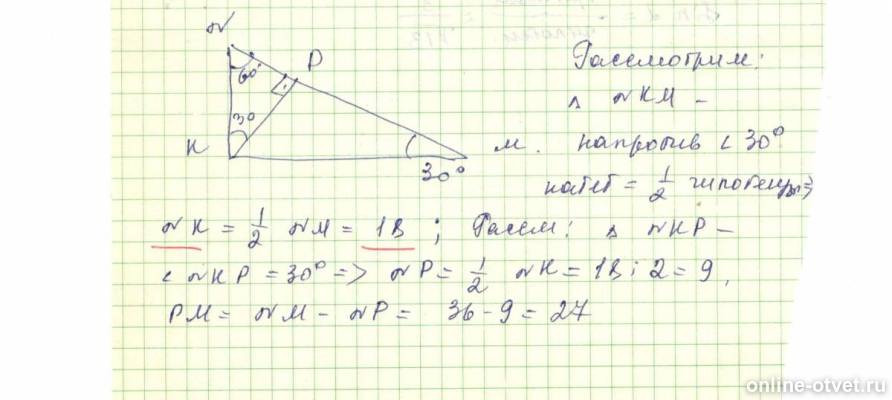 N
60°
P
30
K
M.
30°
Рассмотрим:
Δ NKM –
напротив < 30°
катет = 1/2 гипотенузы =>
NK = 1/2 NM = 18 ; Рассм: Δ NKP –
< NKP = 30° => NP = 1/2 NK = 18 : 2 = 9,
PM = NM – NP = 36 - 9 = 27
online-otvet.ru